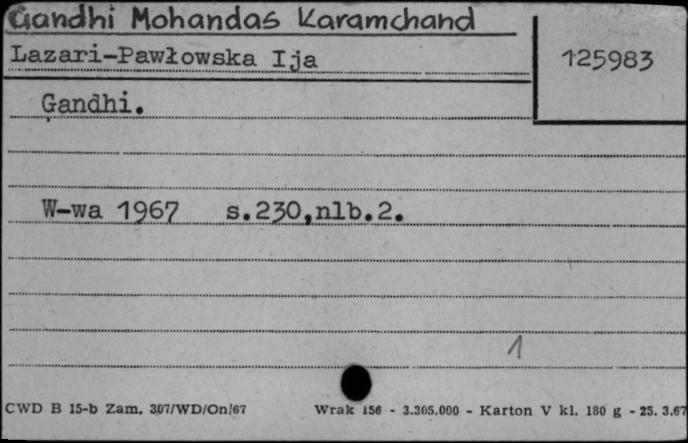 Gandhi Mohandas Karamchand
Lazari-Pawłowska Ija
125983
Gandhi.
W-wa 1967 s.230,nlb.2.
1
CWD B 15-b Zam. 307/WD/On/67 Wrak 156 - 3.305.000 - Karton V kl. 180 g - 25. 3.67